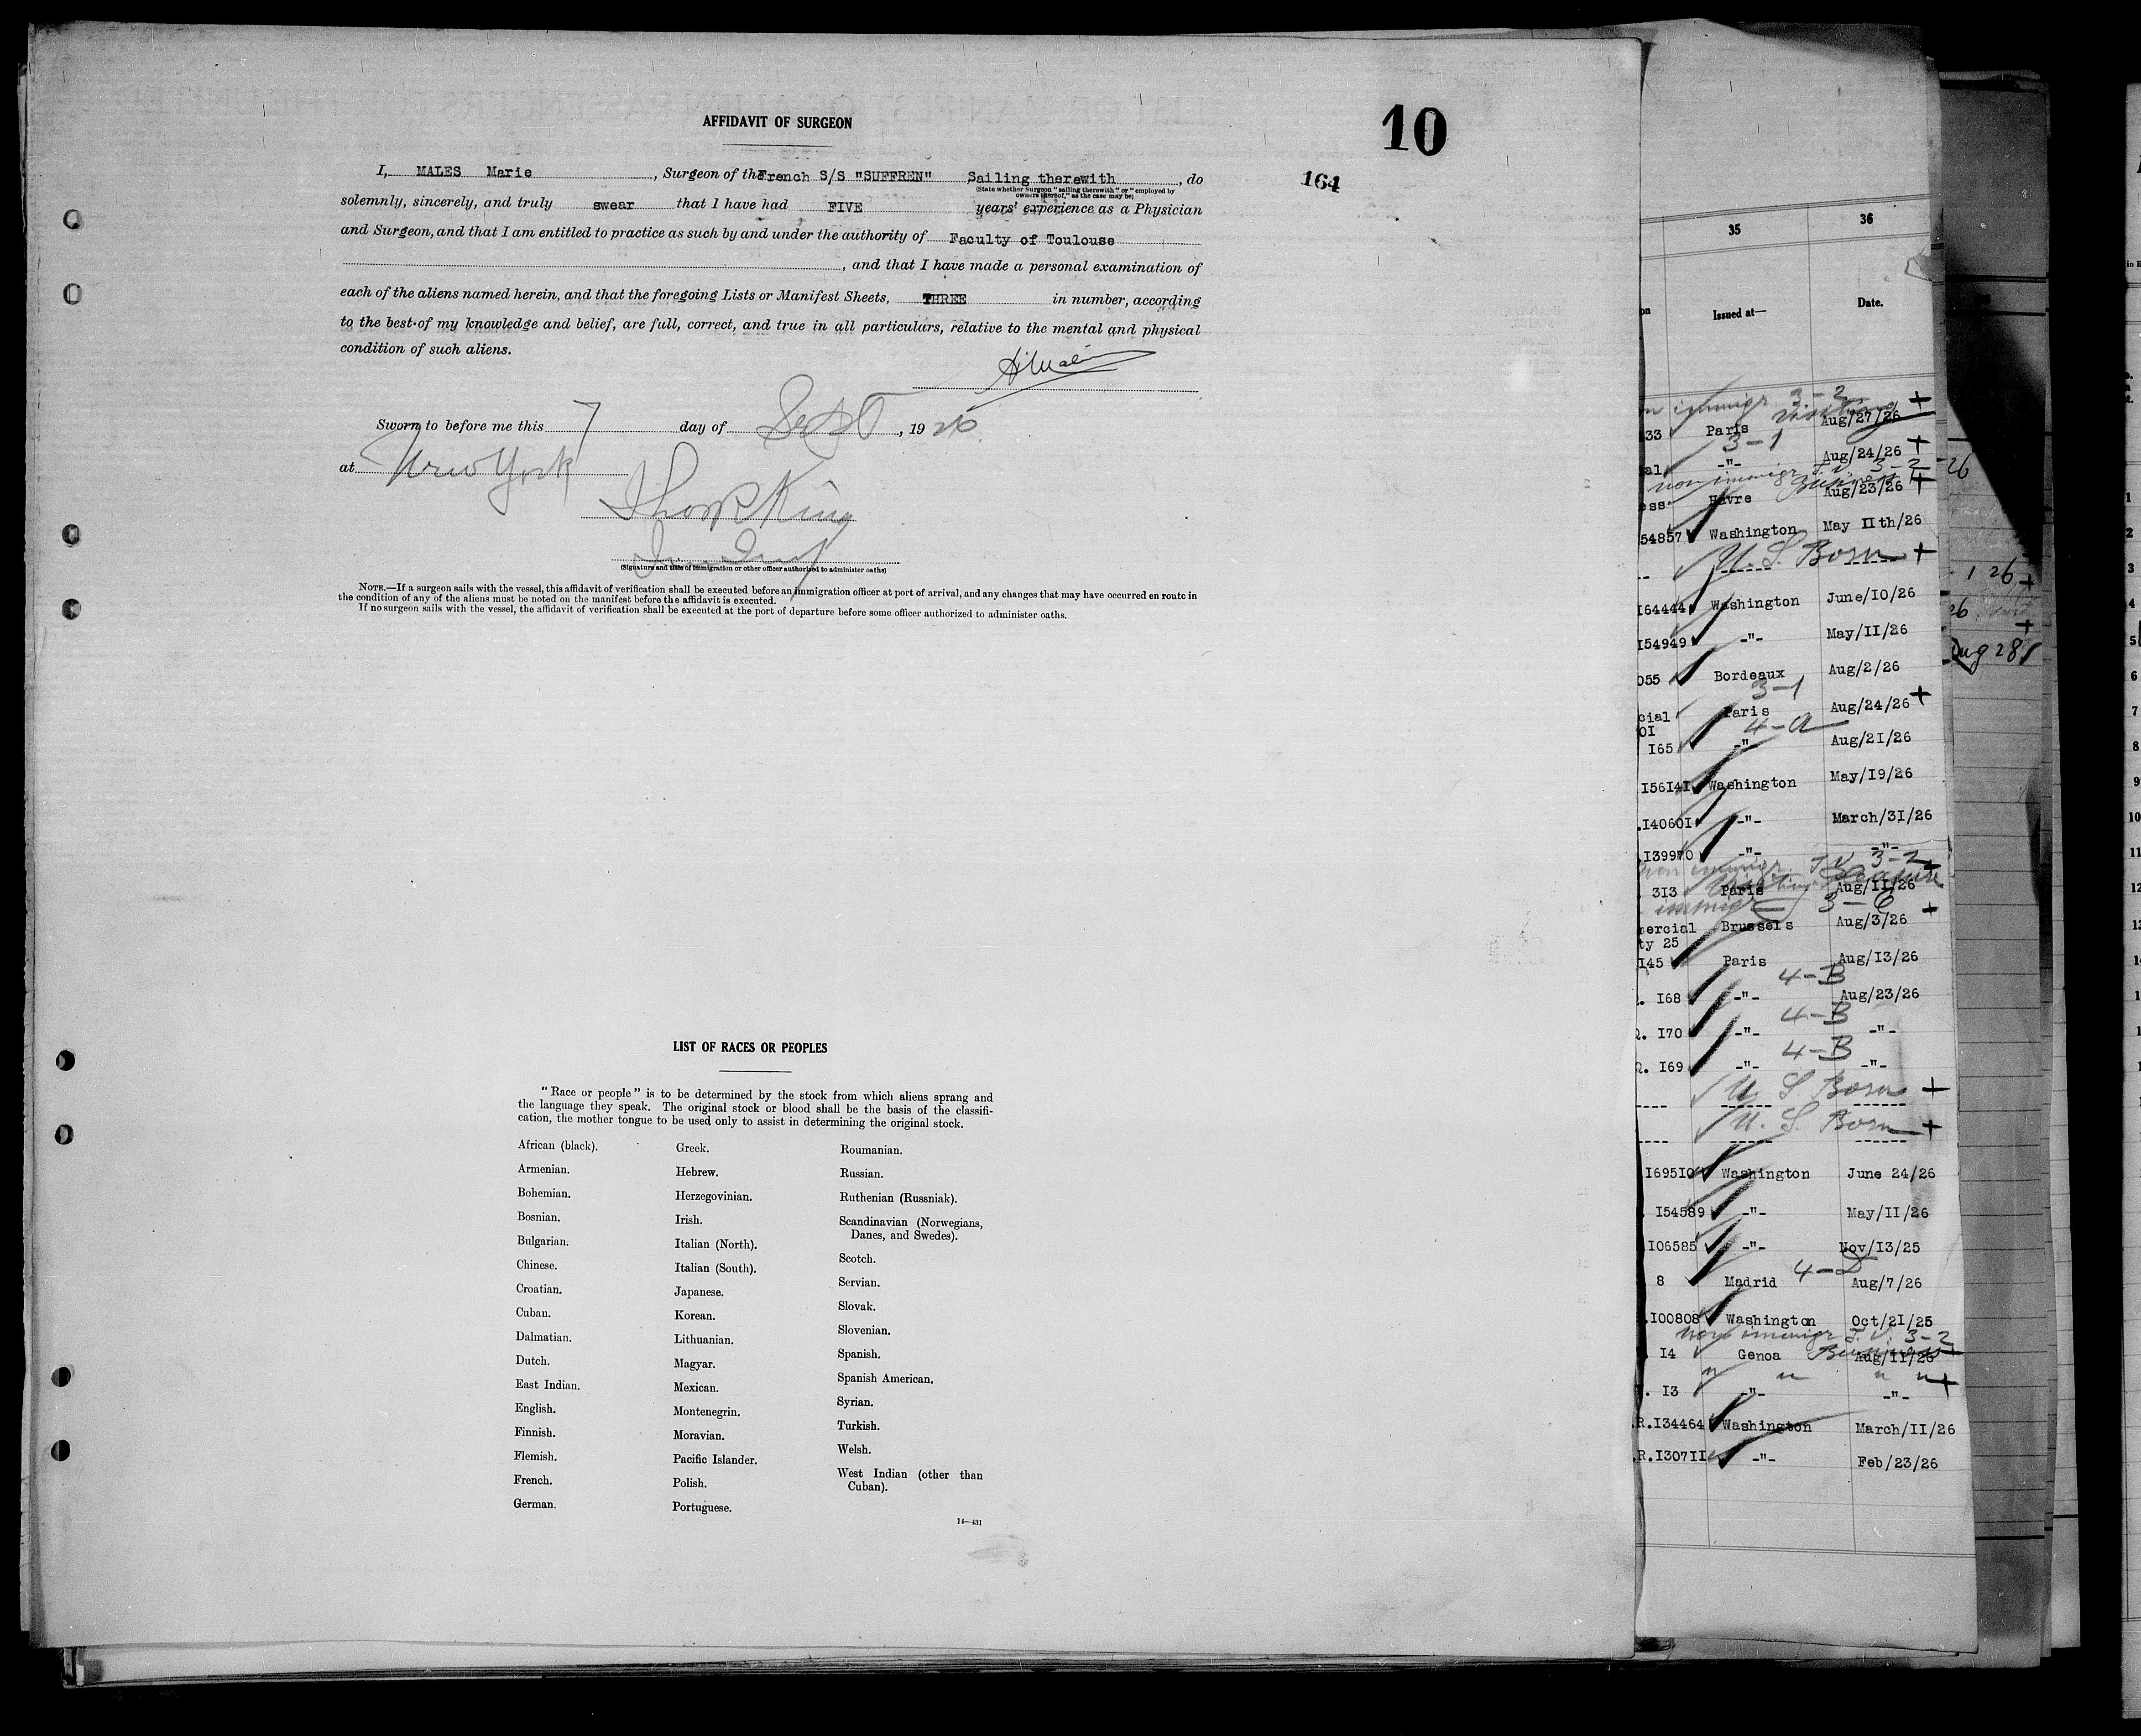 AFFIDAVIT OF SURGEON
10
164
I, MALES Marie, Surgeon of the French S/S "SUFFREN" Sailing therewith, do
(State whether Surgeon "sailing therewith" or "employed by
owners thereof," as the case may be)
solemnly, sincerely, and truly swear that I have had FIVE years' experience as a Physician
and Surgeon, and that I am entitled to practice as such by and under the authority of Faculty of Toulouse
, and that I have made a personal examination of
each of the aliens named herein, and that the foregoing Lists or Manifest Sheets, THREE in number, according
to the best of my knowledge and belief, are full, correct, and true in all particulars, relative to the mental and physical
condition of such aliens.
Sworn to before me this 7 day of Sept, 1926
at New York
(Signature and title of immigration or other officer authorized to administer oaths)
NOTE.—If a surgeon sails with the vessel, this affidavit of verification shall be executed before an immigration officer at port of arrival, and any changes that may have occurred en route in
the condition of any of the aliens must be noted on the manifest before the affidavit is executed.
If no surgeon sails with the vessel, the affidavit of verification shall be executed at the port of departure before some officer authorized to administer oaths.
LIST OF RACES OR PEOPLES
"Race or people" is to be determined by the stock from which aliens sprang and
the language they speak. The original stock or blood shall be the basis of the classifi-
cation, the mother tongue to be used only to assist in determining the original stock.
African (black).
Armenian.
Bohemian.
Bosnian.
Bulgarian.
Chinese.
Croatian.
Cuban.
Dalmatian.
Dutch.
East Indian.
English.
Finnish.
Flemish.
French.
German.
Greek.
Hebrew.
Herzegovinian.
Irish.
Italian (North).
Italian (South).
Japanese.
Korean.
Lithuanian.
Magyar.
Mexican.
Montenegrin.
Moravian.
Pacific Islander.
Polish.
Portuguese.
Roumanian.
Russian.
Ruthenian (Russniak).
Scandinavian (Norwegians,
Danes, and Swedes).
Scotch.
Servian.
Slovak.
Slovenian.
Spanish.
Spanish American.
Syrian.
Turkish.
Welsh.
West Indian (other than
Cuban).
14—431
35 36
Issued at— Date.
non immigr 3-2
visiting
33 Paris Aug/27/26
3-1
al -"- Aug/24/26
non immigr T.V. 3-2
Business
ess Havre Aug/23/26
54857 Washington May IIth/26
-- U.S. Born
I64444 Washington June/I0/26
I54949 -"- May/II/26
055 Bordeaux Aug/2/26
3-1
cial Paris Aug/24/26
0I 4-a
I65 -"- Aug/2I/26
I56I4I Washington May/I9/26
.I4060I -"- March/3I/26
.I39970 -"- -"-
non immigr T.V. 3-2
313 Paris Aug/II/26
immigr 3-6
mercial Brussels Aug/3/26
ty 25
I45 Paris Aug/I3/26
4-B
. I68 -"- Aug/23/26
4-B
. I70 -"- -"-
4-B
. I69 -"- -"-
---- U S Born
---- U.S. Born
I695I0 Washington June 24/26
I54589 -"- May/II/26
I06585 -"- Nov/I3/25
4-D
8 Madrid Aug/7/26
.I00808 Washington Oct/2I/25
non immigr T.V. 3-2
Business
. I4 Genoa Aug/II/26
. I3 -"- -"-
.R.I34464 Washington March/II/26
.R.I307II -"- Feb/23/26
26
1 26
26
Aug 28